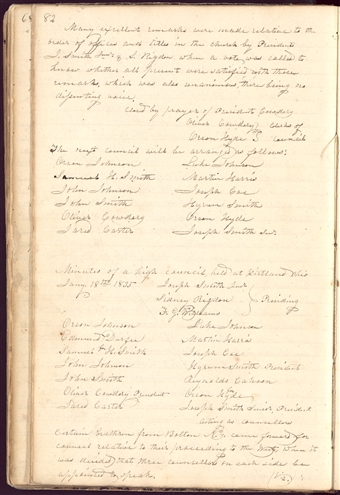 82
Many excellent remarks were made relative to the
order of offices and titles in the church by Presidents
J. Smith & S. Rigdon when a vote was called to
know whether all present were satisfied with these
remarks, which was also unanimous, there being no
disenting voice.
Closed by prayer of President Cowdery
Oliver Cowdery } Clerks of
Orson Hyde } Council
The next council will be arranged as follows:
Orson Johnson Luke Johnson
Samuel H. Smith Martin Harris
John Johnson Joseph Coe
John Smith Hyrum Smith
Oliver Cowdery Orson Hyde
Jared Carter Joseph Smith Sen.
Minutes of a high council held at Kirtland Ohio
Jany 18th 1835 Joseph Smith Junr
Sidney Rigdon } Presiding
F. G. Williams
Orson Johnson Luke Johnson
Edmund Martin Harris
Samuel H. Smith Joseph Coe
John Johnson Hyrum Smith President
John Smith Reynolds Cahoon
Oliver Cowdery President Orson Hyde
Jared Carter Joseph Smith Senr. President
acting as counsellors
Certain brethren from Bolton N.Y. came forward for
counsel relative to their proceeding to the West, When it
was decided that three counsellors on each side be
appointed to speak.